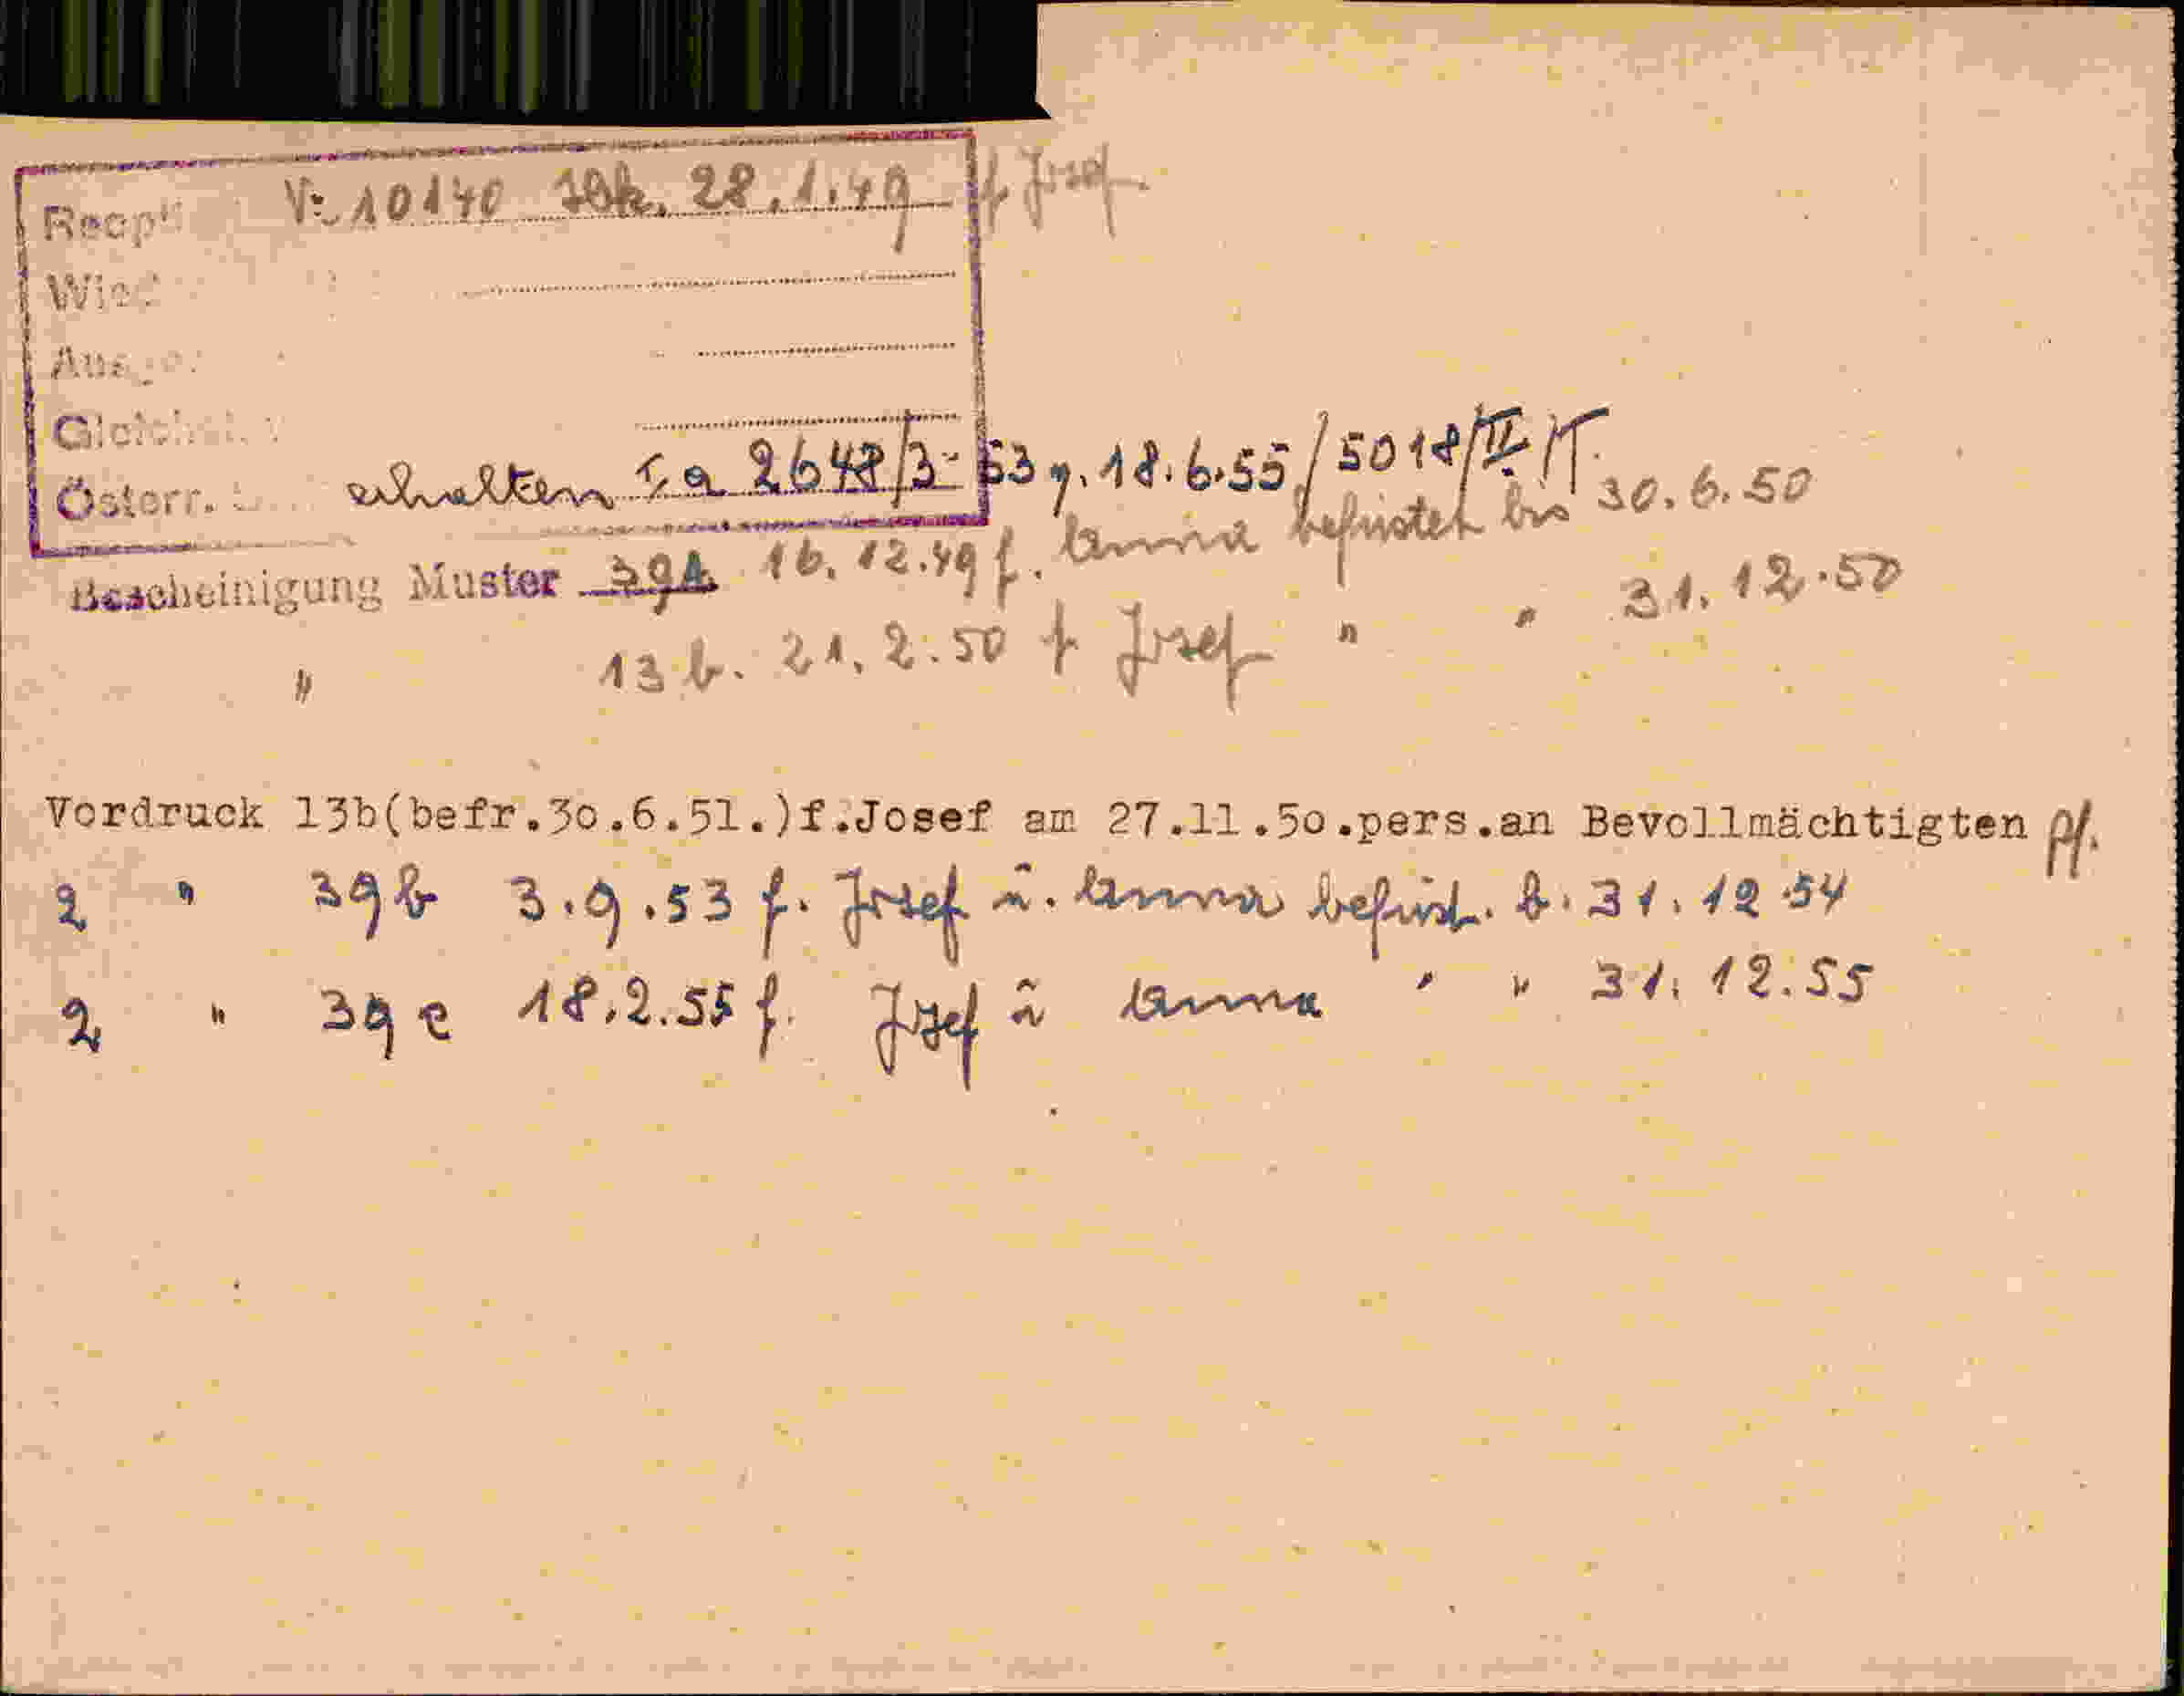 V: 10140 28.1.49 f Josef
Österr. erhalten Ia 2648/3-53 v. 18.6.55/5018/II/
Bescheinigung Muster 39A 16.12.49 f. Anna befristet bis 30.6.50
" 13b. 21.2.50 f Josef " " 31.12.50
Vordruck 13b(befr.30.6.51.)f.Josef am 27.11.50.pers.an Bevollmächtigten
2 " 39b 3.9.53 f. Josef u. Anna befrist. b. 31.12.54
2 " 39e 18.2.55 f. Josef u Anna " " 31.12.55